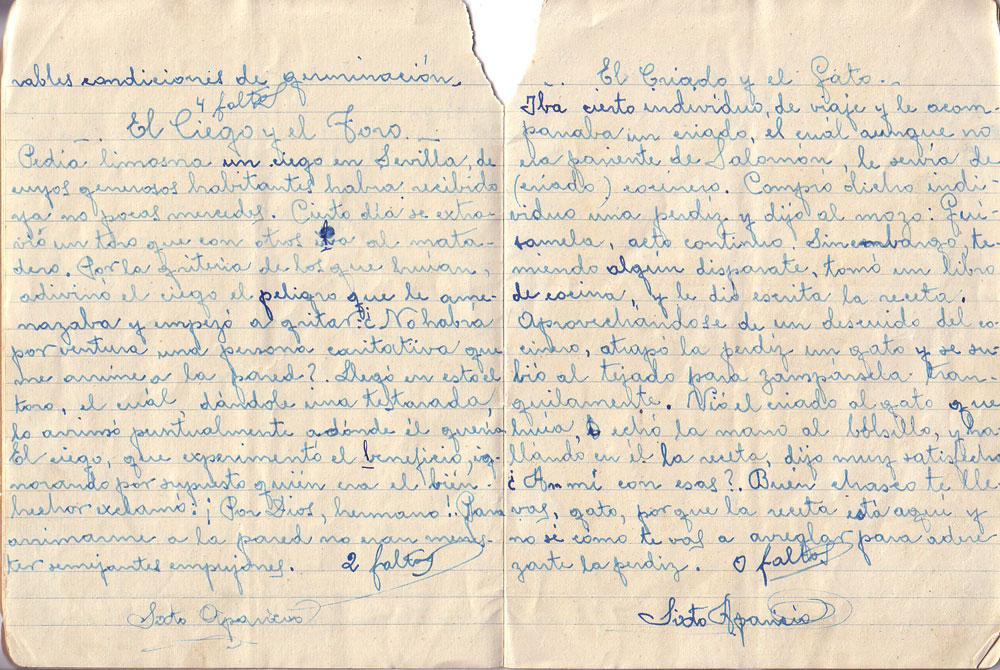 rables condiciones de germinación.
4 faltas
El Ciego y el Toro.
Pedia limosna un ciego en Sevilla, de
cuyos generosos habitantes habia recibido
ya no pocas mercedes. Cierto dia se extra-
vió un toro que con otros iba al mata-
dero. Por la griteria de los que huían,
adivinó el ciego el peligro que le ame-
nazaba y empezó a gritar: ¿No habrá
por ventura una persona caritativa que
me arrime a la pared?. Llegó en esto el
toro, el cuál, dándole una testarada,
lo arrimó puntualmente adónde él quería
El ciego, que experimentó el beneficio, ig-
norando por supuesto quién era el bien-
hechor exclamó: ¡Por Dios, hermano!. Para
arrimarme a la pared no eran menes-
ter semejantes empujones. 2 faltas
Sixto Aparicio
El Criado y el Gato.
Iba cierto individuo, de viaje y le acom-
pañaba un criado, el cuál aunque no
era pariente de Salomón, le servía de
(criado) cocinero. Compró dicho indi-
viduo una perdiz y dijo al mozo: Gui-
samela, acto continuo. Sin embargo, te-
miendo algún disparate, tomó un libro
de cocina, y le dió escrita la receta.
Aprovechándose de un descuido del co-
cinero, atrapó la perdiz un gato y se su-
bió al tejado para zampársela tran-
quilamente. Vió el criado al gato que
huía, echó la mano al bolsillo, y ha-
llándo en él la receta, dijo muy satisfecho
¿A mí con esas?. Buén chasco te lle-
vas, gato, porque la receta está aquí y
no sé cómo te vas a arreglar para adere-
zarte la perdiz. 0 faltas
Sixto Aparicio